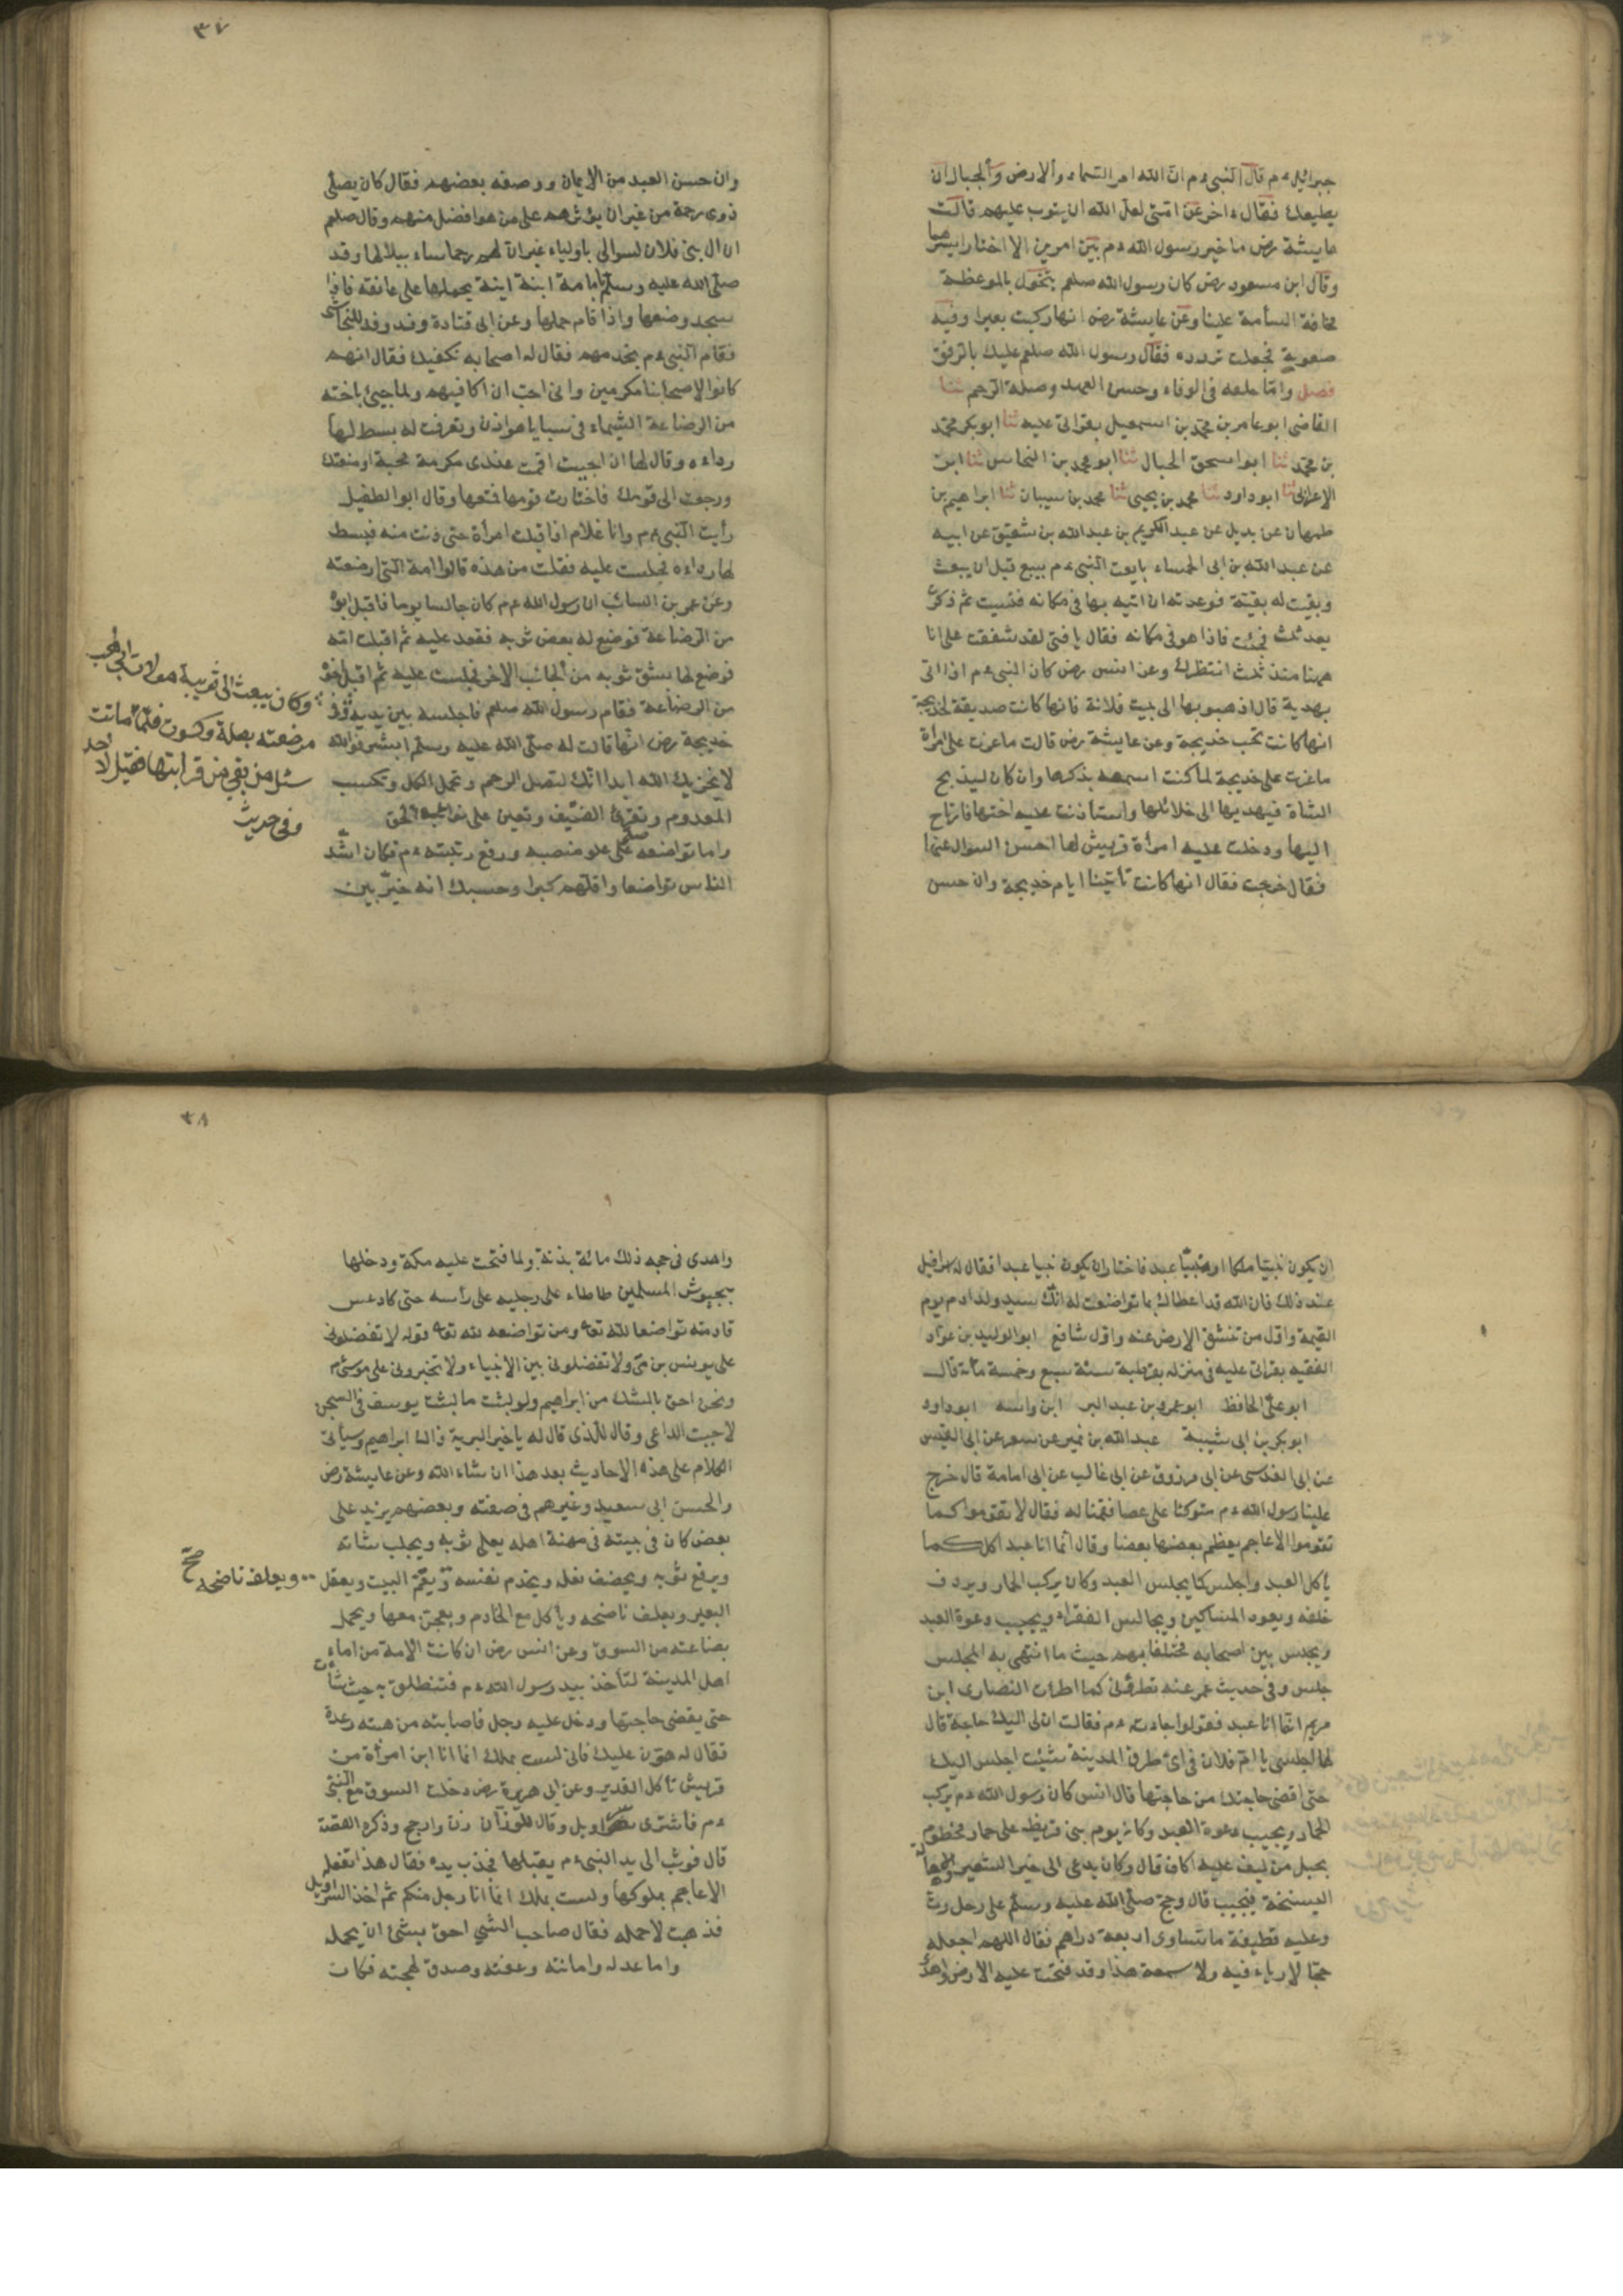 جبرائيل ءم قال النبي ءم ان الله امر السماء والارض والجبال ان
يطيعك فقال ءاخر عن امتي لعل الله ان يتوب عليهم قالت
عايشة رض ما خير رسول الله ءم بين امرين الا اختار ايسرهما
وقال ابن مسعود رض كان رسول الله صلعم يتخول بالموعظة
مخافة السأمة علينا وعن عايشة رض انها ركبت بعيرا وفيه
صعوبة فجعلت تردده فقال رسول الله صلعم عليك بالرفق
فصل واما خلقه في الوفاء وحسن العهد وصلة الرحم ثنا
القاضى ابو عامر بن محمد بن اسمعيل بقراتى عليه ثنا ابو بكر محمد
بن محمد ثنا ابو اسحق الحبال ثنا ابو محمد بن النحاس ثنا ابن
الاعرابى ثنا ابو داود ثنا محمد بن يحيى ثنا محمد بن سيبان ثنا ابراهيم بن
طهمان عن بديل عن عبد الكريم بن عبد الله بن شقيق عن ابيه
عن عبد الله بن ابى الحمساء بايعت النبي ءم ببيع قبل ان يبعث
وبقيت له بقية فوعدته ان اتيه بها في مكانه فنسيت ثم ذكرت
بعد ثلث فجئت فاذا هو في مكانه فقال يا فتى لقد شققت على انا
ههنا منذ ثلث انتظرك وعن انس رض كان النبي ءم اذا اتى
بهدية قال اذهبوا بها الى بيت فلانة فانها كانت صديقة لخديجة
انها كانت تحب خديجة وعن عايشة رض قالت ما غرت على امرأة
ما غرت على خديجة لما كنت اسمعه يذكرها وان كان ليذبح
الشاة فيهديها الى خلائلها واستأذنت عليه اختها فارتاح
اليها ودخلت عليه امرأة فهش لها احسن السوال عنها
فقال خرجت فقال انها كانت تأتينا ايام خديجة وان حسن
٣٧
وان حسن العهد من الايمان ووصفه بعضهم فقال كان يصلى
ذوى رحمة من غير ان يؤثرهم على من هو افضل منهم وقال صلعم
ان ال بنى فلان ليسوا لي باولياء غير ان لهم رحما سابلها ببلالها وقد
صلى الله عليه وسلم بامامة ابنة ابنته يحملها على عاتقه فاذا
سجد وضعها واذا قام حملها وعن ابى قتادة وفد وفد للنجاشى
فقام النبي ءم يخدمهم فقال له اصحابه نكفيك فقال انهم
كانوا لاصحابنا مكرمين وانى احب ان اكافيهم ولما جيئ باخته
من الرضاعة الشيماء فى سبايا هوازن وتعرفت له بسط لها
رداءه وقال لها ان احببت اقمت عندى مكرمة محبة او متعتك
ورجعت الى قومك فاختارت قومها فمتعها وقال ابو الطفيل
رأيت النبي ءم وانا غلام اذ اقبلت امرأة حتى دنت منه فبسط
لها رداءه فجلست عليه فقلت من هذه قالوا امه التى ارضعته
وعن عمر بن السائب ان رسول الله ءم كان جالسا يوما فاقبل ابوه
من الرضاعة فوضع له بعض ثوبه فقعد عليه ثم اقبلت امه
فوضع لها بشق ثوبه من الجانب الاخر فجلست عليه ثم اقبل اخوه
من الرضاعة فقام رسول الله صلعم فاجلسه بين يديه
خديجة رض انها قالت له صلى الله عليه وسلم ابشر فوالله
لا يخزيك الله ابدا انك لتصل الرحم وتحمل الكل وتكسب
المعدوم وتقرئ الضيف وتعين على نوائب الحق
واما تواضعه صلعم على علو منصبه ورفع رتبته ءم فكان اشد
الناس تواضعا واقلهم كبرا وحسبك انه خير بين
وكان يبعث الى ثويبة مولاة ابى لهب
مرضعته بصلة وكسوت فلما ماتت
سئل من بقى من قرابتها فقيل لا احد
وفى حديث
ان يكون نبيا ملكا او نبيا عبد فاختار ان يكون نبيا عبدا فقال له اسرافيل
عند ذلك فان الله قد اعطاك بما تواضعت له انك سيد ولد ادم يوم
القيمة واول من تنشق الارض عنه واول شافع ابو الوليد بن عواد
الفقيه بقراتى عليه فى منزله بقرطبة سنة سبع وخمسة مائة قال
ابو على الحافظ ابو عمرو بن عبد البر ابن واسه ابو داود
ابو بكر بن ابى شيبة عبد الله بن نمير عن مسعر عن ابى العنبس
عن ابى العدسى عن ابى مرزوق عن ابى غالب عن ابى امامة قال خرج
علينا رسول الله ءم متوكئا على عصا فقمنا له فقال لا تقوموا كما
تقوموا الاعاجم يعظم بعضها بعضا وقال انما انا عبد اكل كما
يأكل العبد واجلس كما يجلس العبد وكان يركب الحمار ويردف
خلفه ويعود المساكين ويجالس الفقراء ويجيب دعوة العبد
ويجلس بين اصحابه مختلطا بهم حيث ما انتهى به المجلس
جلس وفى حديث عمر عنه لا تطرونى كما اطرت النصارى ابن
مريم انما انا عبد فقولوا جاءت ءم فقالت ان لى اليك حاجة قال
لها اجلسى يا ام فلان فى اى طرق المدينة شيئت اجلس اليك
حتى اقضى حاجتك من حاجتها قال انس كان رسول الله ءم يركب
الحمار ويجيب دعوة العبد وكان يوم بنى قريظة على حمار مخطوم
بحبل من ليف عليه اكاف قال وكان يدعى الى خبز الشعير والاهالة
السنخة فيجيب قال وحج صلى الله عليه وسلم على رحل رث
وعليه قطيفة ما تساوى اربعة دراهم فقال اللهم اجعله
حجا لا رياء فيه ولا سمعة هذا وقد فتحت عليه الارض واهدى
٣٨
واهدى فى حجه ذلك مائة بدنة ولما فتحت عليه مكة ودخلها
بجيوش المسلمين طاطاء على رجليه على رأسه حتى كاد عس
قادمته تواضعا لله تعا ومن تواضعه لله تعا قوله لا تفضلونى
على يونس بن متى ولا تفضلونى بين الانبياء ولا تخيرونى على موسى ءم
ونحن احق بالشك من ابراهيم ولو لبثت ما لبثت يوسف فى السجن
لاجبت الداعى وقال للذى قال له يا خير البرية ذالك ابراهيم وسيأتى
الكلام على هذه الاحاديث بعد هذا ان شاء الله وعن عايشة رض
والحسن ابى سعيد وغيرهم فى صفته وبعضهم يزيد على
بعض كان فى بيته فى مهنة اهله يعلى ثوبه ويحلب شاته
ويرقع ثوبه ويخصف نعله ويخدم نفسه ويقم البيت ويعقل
البعير ويعلف ناضحه ويأكل مع الخادم ويعجن معها ويحمل
بضاعته من السوق وعن انس رض ان كانت الامة من اماء
اهل المدينة لتأخذ بيد رسول الله ءم فتنطلق به حيث شاءت
حتى يقضى حاجتها ودخل عليه رجل فاصابته من هيبته رعدة
فقال له هون عليك فانى لست بملك انما انا ابن امرأة من
قريش تأكل القديد وعن ابى هريرة رض دخلت السوق مع النبى
ءم فاشترى سراويل وقال للوزان زن وارجح وذكر القصة
قال فوثب الى يد النبي ءم يقبلها فجذب يده فقال هذا تفعله
الاعاجم بملوكها ولست بملك انما انا رجل منكم ثم اخذ السراويل
فذهبت لاحمله فقال صاحب الشي احق بشئ ان يحمله
واما عدله وامانته وعفته وصدق لهجته فكان
ويعلف ناضحه صح